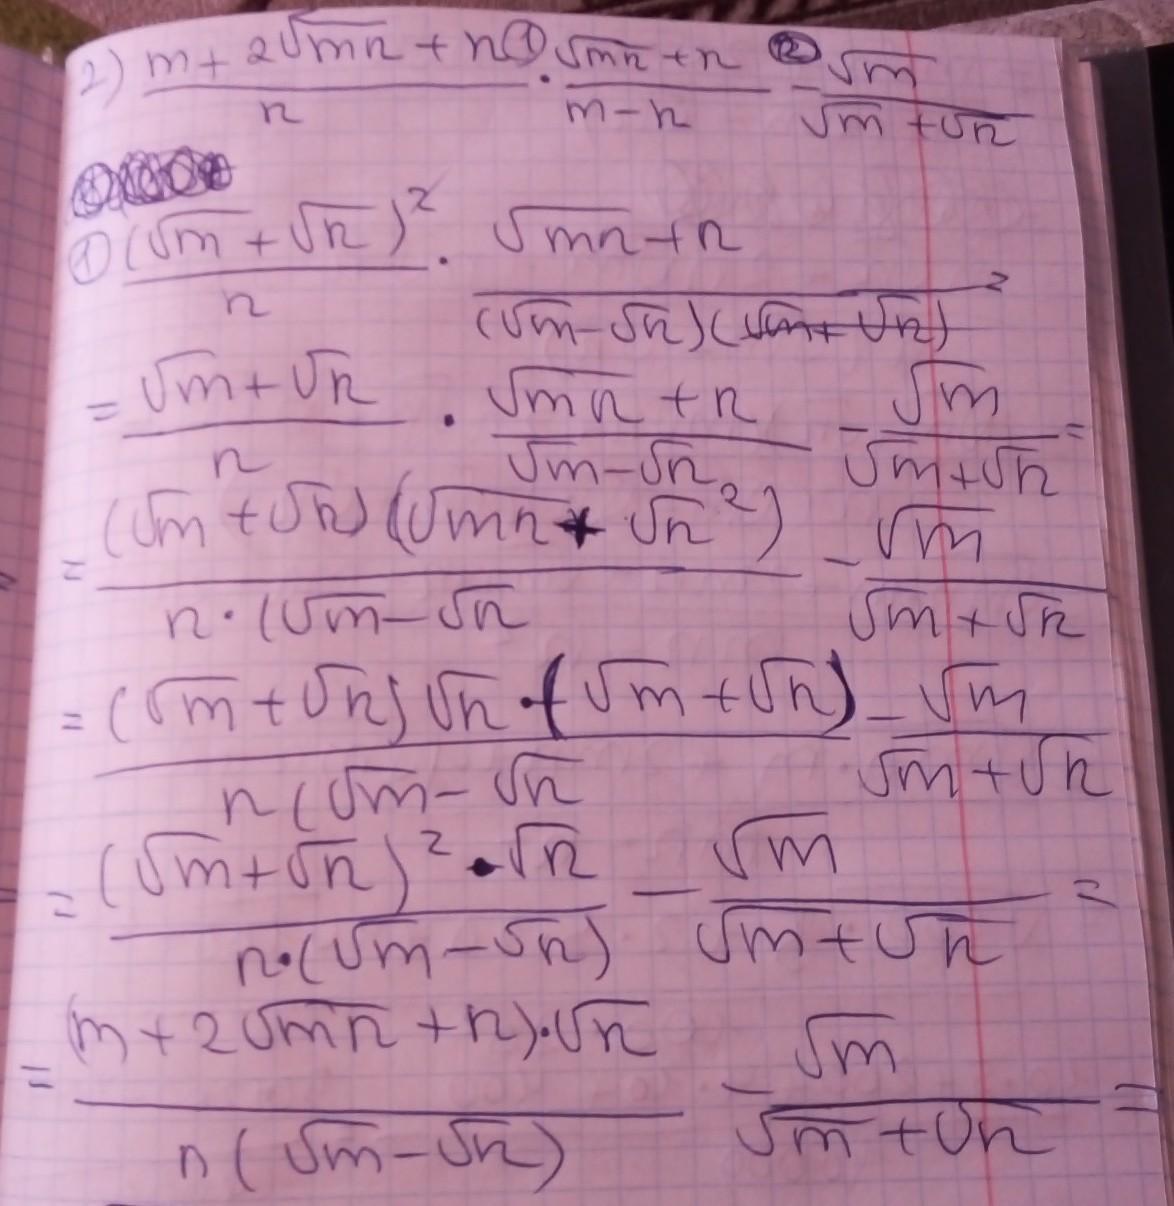 2) (m + 2√(mn) + n)/n ① · (√(mn) + n)/(m − n) ② − √m/(√m + √n)
① (√m + √n)²/n · (√(mn) + n)/((√m − √n)(√m + √n))
= (√m + √n)/n · (√(mn) + n)/(√m − √n) − √m/(√m + √n) =
= (√m + √n)(√(mn) + √n²)/(n · (√m − √n) − √m/(√m + √n)
= (√m + √n)√n · (√m + √n)/(n(√m − √n) − √m/(√m + √n)
= (√m + √n)² · √n/(n · (√m − √n)) − √m/(√m + √n) =
= (m + 2√(mn) + n) · √n/(n(√m − √n)) − √m/(√m + √n) =